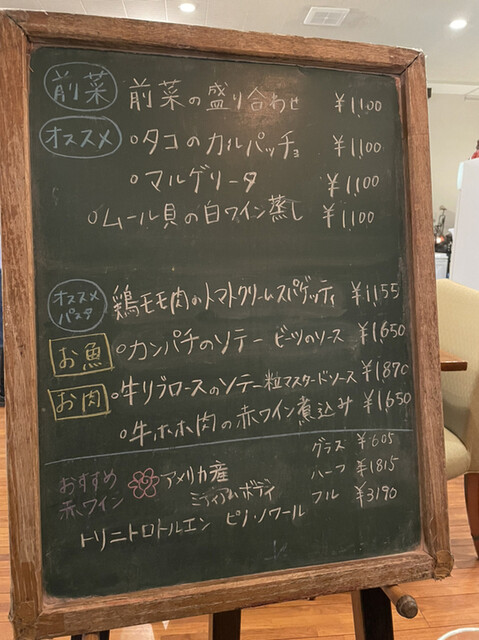 前菜 前菜の盛り合わせ ¥1,100
オススメ ○タコのカルパッチョ ¥1,100
○マルゲリータ ¥1,100
○ムール貝の白ワイン蒸し ¥1,100
オススメパスタ 鶏モモ肉のトマトクリームスパゲッティ ¥1,155
お魚 ○カンパチのソテー ビーツのソース ¥1,650
お肉 ○牛リブロースのソテー粒マスタードソース ¥1,870
○牛ホホ肉の赤ワイン煮込み ¥1,650
おすすめ赤ワイン アメリカ産 グラス ¥605
ミディアムボディ ハーフ ¥1815
フル ¥3190
トリニトロトルエン ピノ・ノワール